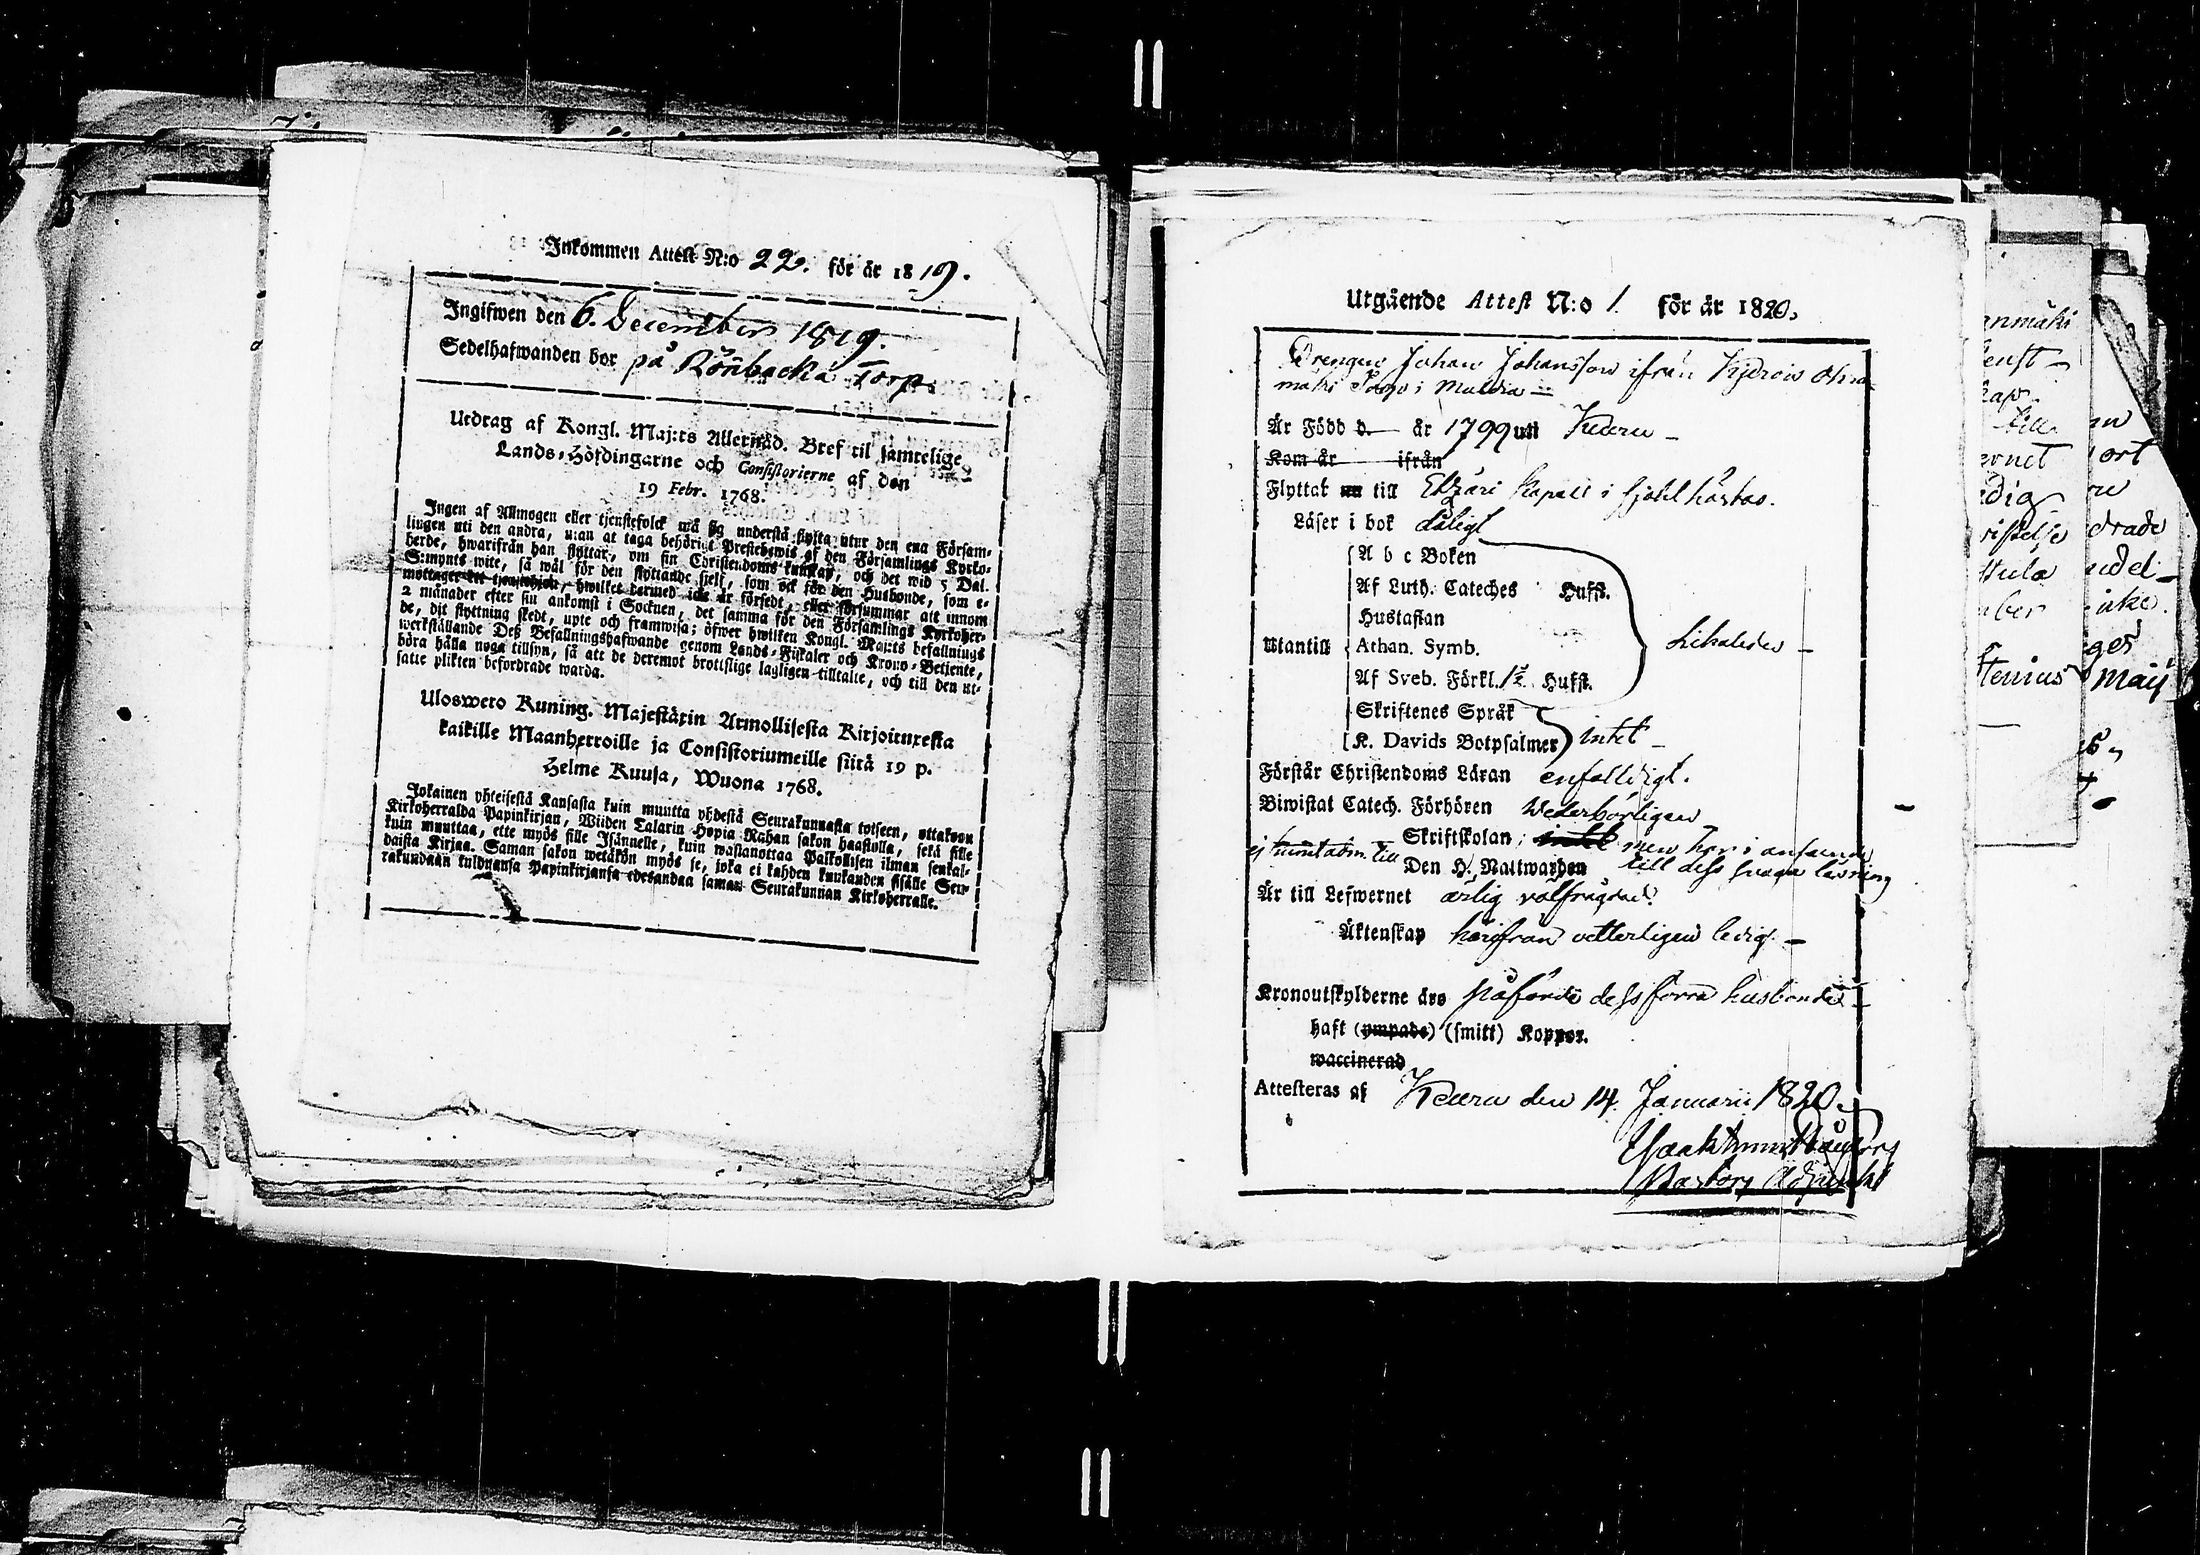 Inkommen Attest N:o 22. för år 1819.
Ingifwen den 6. December 1819.
Sedelhafwanden bor på Rönbacka Torp.
Utdrag af Kongl. Maj:ts Allernåd. Bref til samtelige
Lands-Höfdingarne och Consistorierne af den
19 Febr. 1768.
Ingen af Allmogen eller tjenstefolck må sig understå flytta utur den ena Försam-
lingen uti den andra, utan at taga behörigt Prestebewis af den Församlings Kyrko-
herde, hwarifrån han flyttar, om sin Christendoms kunskap, och det wid 5 Dal.
S:mynts wite, så wäl för den flyttande sjelf, som ock för den Husbonde, som e-
mottager ett tjenstehjon, hwilket dermed icke är försedt, eller försummar att innom
2 månader efter sin ankomst i Socknen, det samma för den Församlings Kyrkoher-
de, dit flyttning skedt, upte och framwisa; öfwer hwilken Kongl. Maj:ts befallnings
werkställande Deß Befallningshafwande genom Lands-Fiskaler och Krono-Betjente,
böra hålla noga tillsyn, så att de deremot brottslige lagligen tilltalte, och till den ut-
satte plikten befordrade warda.
Uloswero Kuning. Majestätin Armollisesta Kirjoituxesta
kaikille Maanherroille ja Consistoriumeille siitä 19 p.
Helme Kuusa, Wuona 1768.
Jokainen yhteisestä Kansasta kuin muutta yhdestä Seurakunnasta toiseen, ottakoon
Kirkoherralda Papinkirjan, Wiiden Talarin Hopia Rahan sakon haastolla, sekä sille
kuin muuttaa, ette myös sille Isännelle, kuin wastanottaa Palkollisen ilman senkal-
daista Kirjaa. Saman sakon wetäkön myös se, joka ei kahden kuukauden sisälle Seu-
rakundaan tulduansa Papinkirjansa edesandaa saman Seurakunnan Kirkoherralle.
Utgående Attest N:o 1. för år 1820.
Drengen Johan Johansson ifrån
mäki Torp i
Är Född d. år 1799 uti Keuru
Kom år ifrån
Flyttat nu till Etzäri Kapell i
Läser i bok dåligt
A b c Boken
Af Luth. Cateches Hufst.
Hustaflan
Utantill Athan. Symb. likaledes
Af Sveb. Förkl. 1ª Hufst.
Skriftenes Språk
K. Davids Botpsalmer intet
Förstår Christendoms Läran enfaldigt.
Biwistat Catech. Förhören wederbörligen
Skriftskolan; intet men har i
ej till Den H. Nattwarden till dess läsning
Är till Lefwernet ärlig välfrägdad.
Äktenskap härifrån vetterligen ledig.
Kronoutskylderne äro påförde dess förra husbonde
haft (ympade) (smitt) Koppor.
waccinerad
Attesteras af Keuru den 14. Januarii 1820.
Pastors Adjunct